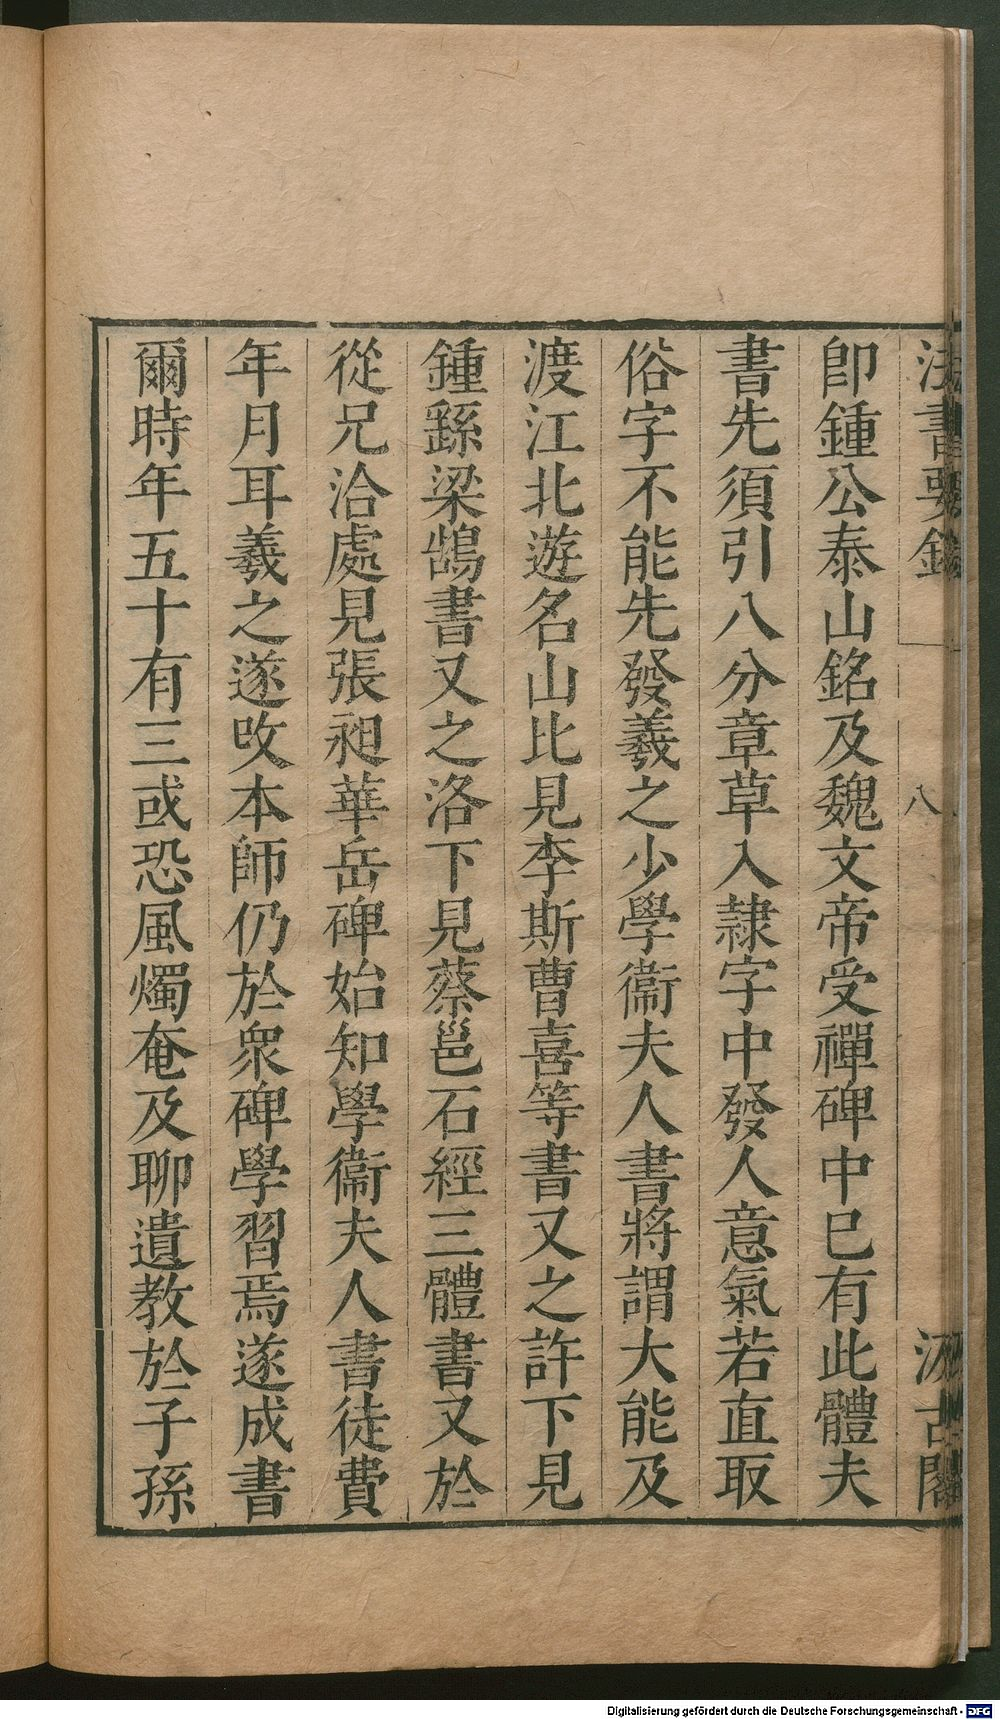 法書要錄
八
汲古閣
即鍾公泰山銘及魏文帝受禪碑中已有此體夫
書先須引八分章草入隷字中發人意氣若直取
俗字不能先發羲之少學衞夫人書將謂大能及
渡江北遊名山比見李斯曹喜等書又之許下見
鍾繇梁鵠書又之洛下見蔡邕石經三體書又於
從兄洽處見張昶華岳碑始知學衞夫人書徒費
年月耳羲之遂改本師仍於衆碑學習焉遂成書
爾時年五十有三或恐風燭奄及聊遺教於子孫
Digitalisierung gefördert durch die Deutsche Forschungsgemeinschaft - DFG